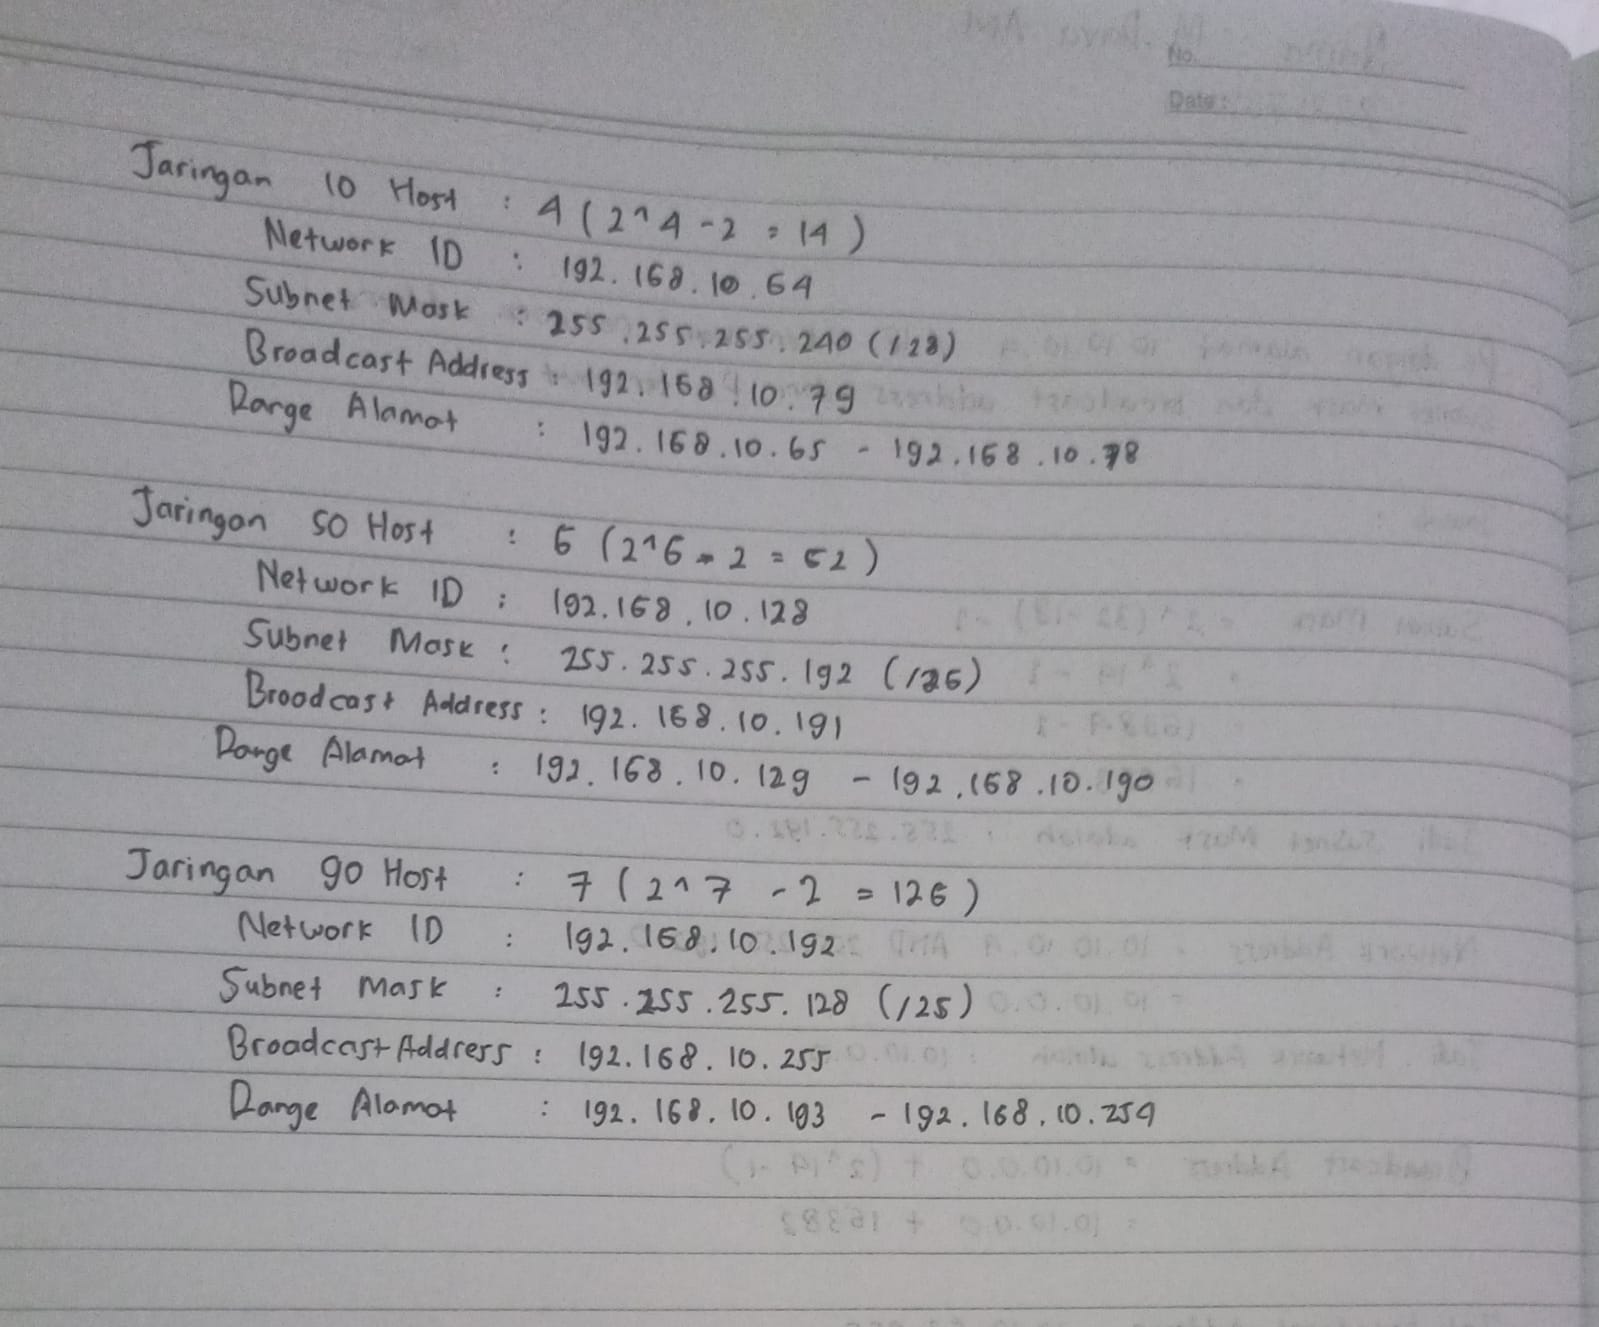 No.
Date:
Jaringan 10 Host : 4 (2^4 - 2 = 14)
Network ID : 192.168.10.64
Subnet Mask : 255.255.255.240 (/28)
Broadcast Address : 192.168.10.79
Range Alamat : 192.168.10.65 - 192.168.10.78
Jaringan 50 Host : 6 (2^6 - 2 = 62)
Network ID : 192.168.10.128
Subnet Mask : 255.255.255.192 (/26)
Broadcast Address : 192.168.10.191
Range Alamat : 192.168.10.129 - 192.168.10.190
Jaringan 90 Host : 7 (2^7 - 2 = 126)
Network ID : 192.168.10.192
Subnet Mask : 255.255.255.128 (/25)
Broadcast Address : 192.168.10.255
Range Alamat : 192.168.10.193 - 192.168.10.254